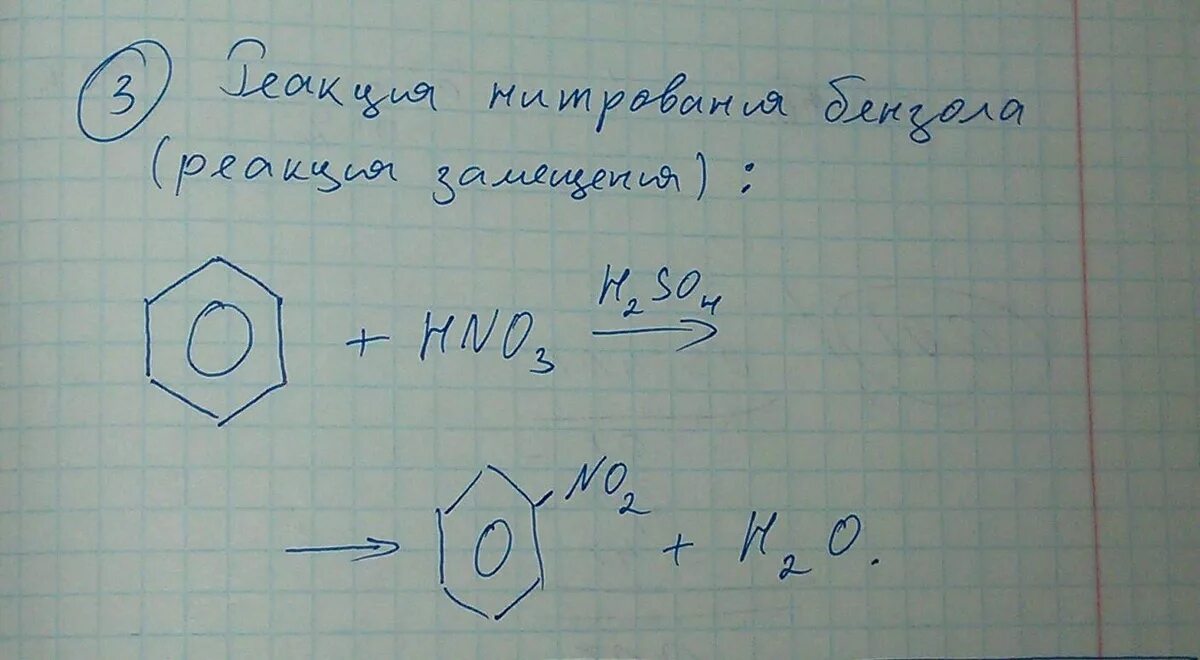 3 Реакция нитрования бензола
(реакция замещения) :
+ HNO₃ H₂SO₄ →
→ NO₂ + H₂O.